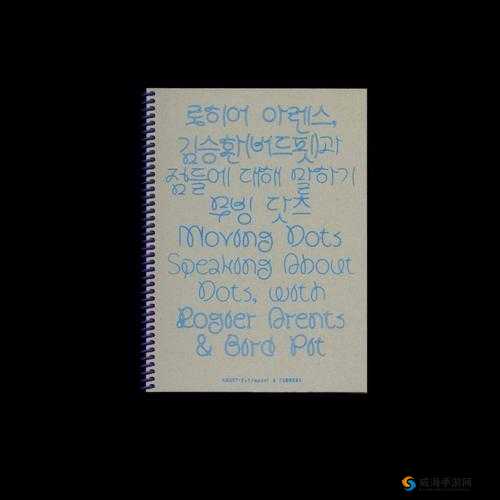 로히어 아렌스,
김승환(버드핏)과
점들에 대해 말하기
무빙 닷츠
Moving Dots
Speaking About
Dots, with
Rogier Arents
& Bird Pit
威海手游网